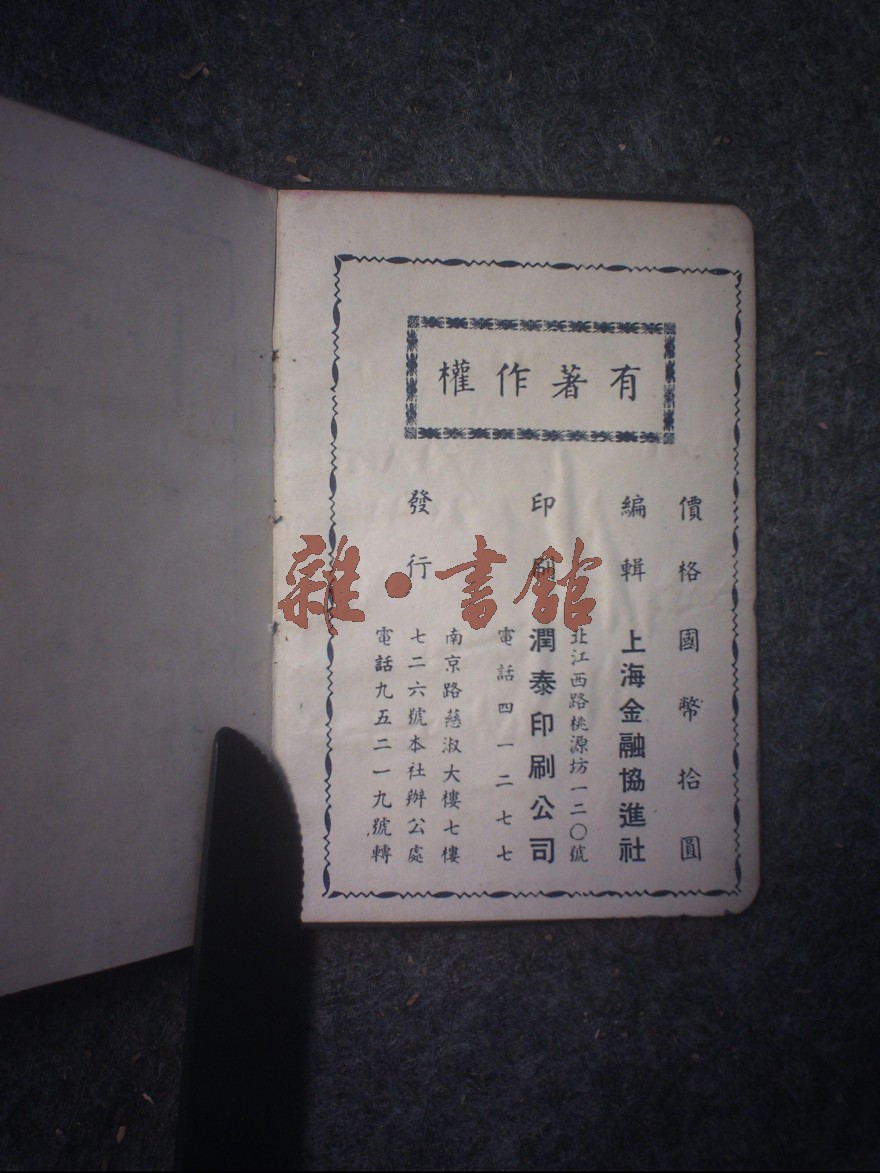 有著作權
價格國幣拾圓
編輯 上海金融協進社
北江西路桃源坊一二〇號
印刷 潤泰印刷公司
電話四一二七七
南京路慈淑大樓七樓
發行 七二六號本社辦公處
電話九五二一九號轉
雜·書館